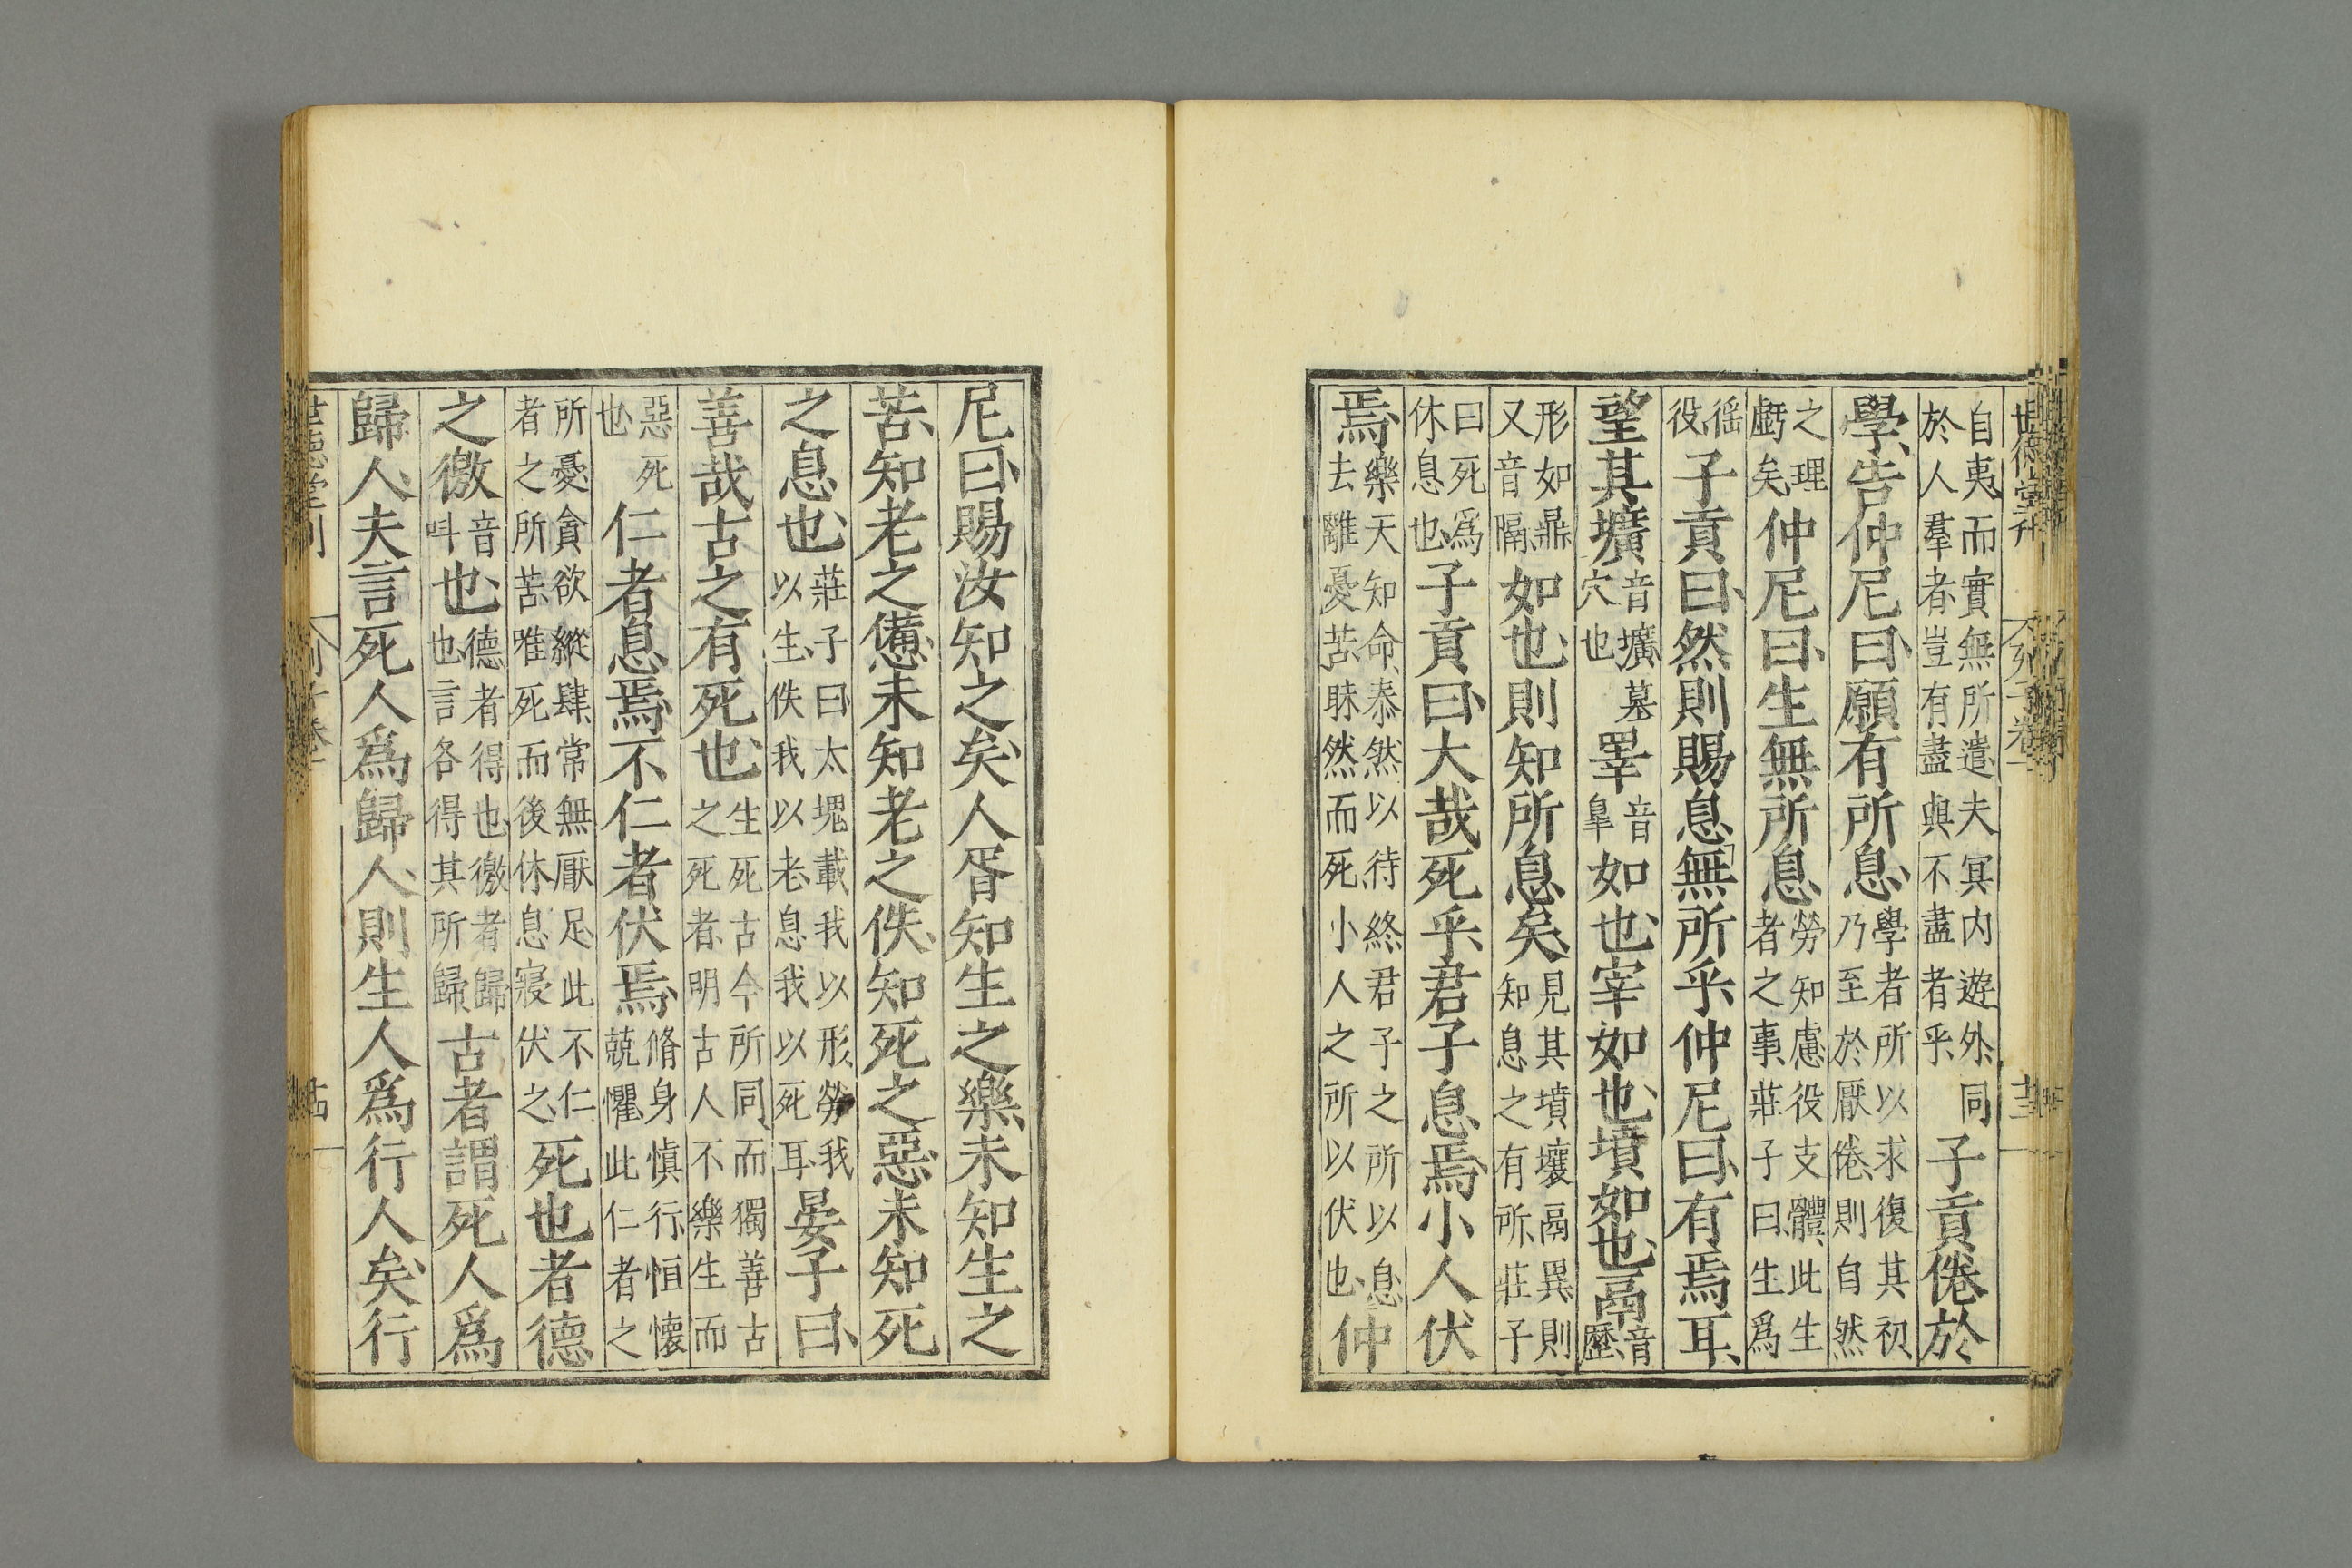 世德堂刊 列子卷一 十三
自夷而實無所遣夫冥内遊外同於人羣者豈有盡與不盡者乎子貢倦於
學告仲尼曰願有所息學者所以求復其初乃至於厭倦則自然
之理虧矣仲尼曰生無所息勞知慮役支體此生者之事莊子曰生爲
徭役子貢曰然則賜息無所乎仲尼曰有焉耳
望其壙音壙墓穴也睪音臯如也宰如也墳如也鬲音歷
形如鼎又音隔如也則知所息矣見其墳壤鬲異則知息之有所莊子
曰死爲休息也子貢曰大哉死乎君子息焉小人伏
焉樂天知命泰然以待終君子之所以息去離憂苦昧然而死小人之所以伏也仲
尼曰賜汝知之矣人胥知生之樂未知生之
苦知老之憊未知老之佚知死之惡未知死
之息也莊子曰太塊載我以形勞我以生佚我以老息我以死耳晏子曰
善哉古之有死也生死古今所同而獨善古之死者明古人不樂生而
惡死也仁者息焉不仁者伏焉脩身愼行恒懷兢懼此仁者之
所憂貪欲縱肆常無厭足此不仁者之所苦唯死而後休息寢伏之死也者德
之徼音叫也德者得也徼者歸也言各得其所歸古者謂死人爲
歸人夫言死人爲歸人則生人爲行人矣行
世德堂刊 列子卷一 十四